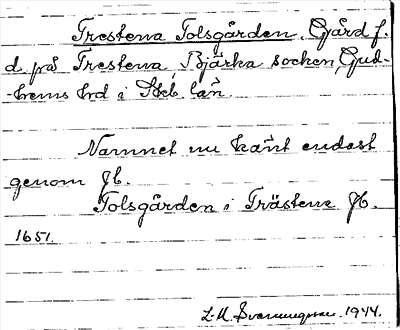 Trestena Tolsgården. Gård f.
d. på Trestena, Bjärka socken, Gud-
-hems hrd i Skb. län.
Namnet nu känt endast
genom Jb.
Tolsgården i Trästena Jb.
1651.
1944.